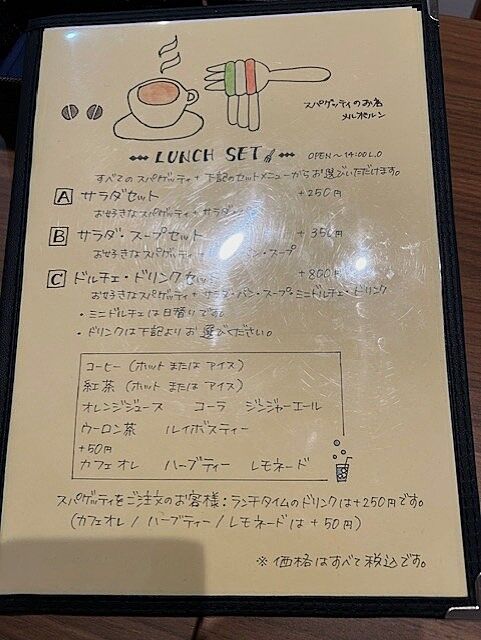 スパゲッティのお店
メルボルン
LUNCH SET
OPEN〜14:00L.O
すべてのスパゲッティ+下記のセットメニューからお選びいただけます。
A サラダセット +250円
お好きなスパゲッティ+サラダ・
B サラダ・スープセット +350円
お好きなスパゲッティ+ パン・スープ
C ドルチェ・ドリンクセット +800円
お好きなスパゲッティ+サラダ・パン・スープ・ミニドルチェ・ドリンク
・ミニドルチェは日替りです。
・ドリンクは下記よりお選びください。
コーヒー(ホット または アイス)
紅茶(ホット または アイス)
オレンジジュース コーラ ジンジャーエール
ウーロン茶 ルイボスティー
+50円
カフェオレ ハーブティー レモネード
スパゲッティをご注文のお客様:ランチタイムのドリンクは+250円です。
(カフェオレ/ハーブティー/レモネードは+50円)
※価格はすべて税込です。